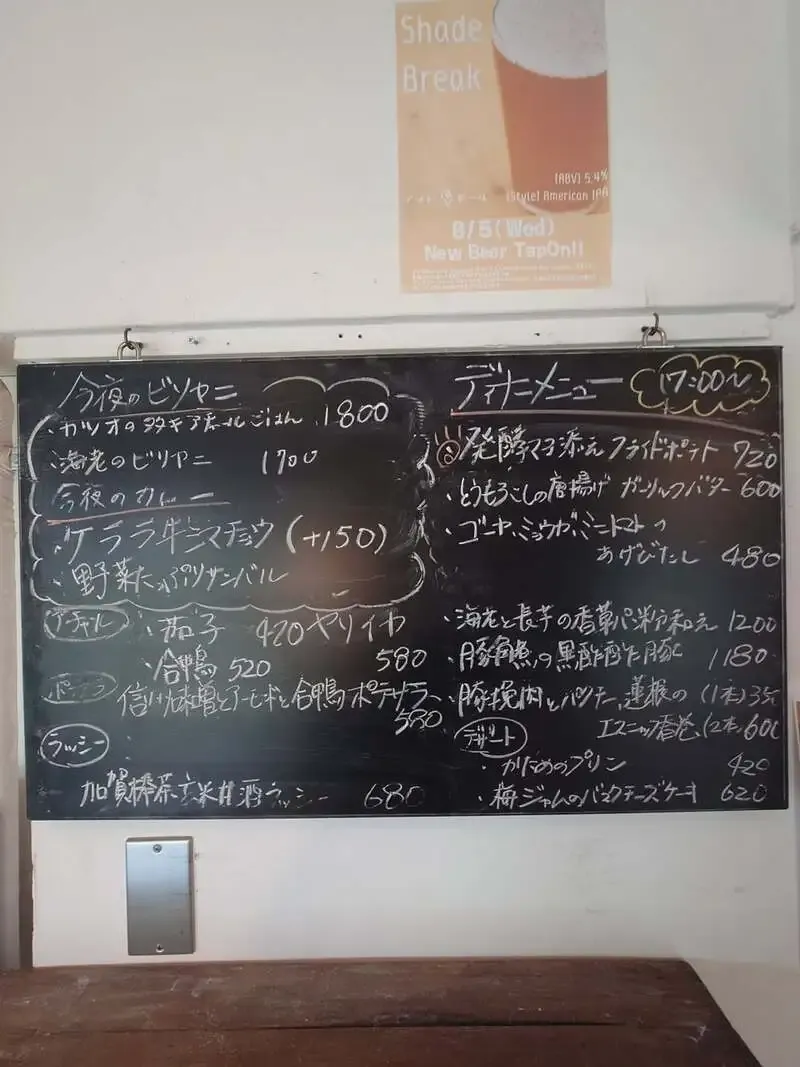 Shade
Break
[ABV] 5.4%
[Style] American IPA
8/5(Wed)
New Beer TapOn!!
今夜のビリヤニ
・カツオの ごはん 1800
・海老のビリヤニ 1700
今夜のカレー
・ケララ牛シマチョウ (+150)
・野菜たっぷりサンバル
アチャール ・茄子 420 ヤリイカ
580
・合鴨 520
ポテサラ 味噌とアーモンドと合鴨のポテサラ
580
ラッシー
加賀棒茶玄米甘酒ラッシー 680
ディナーメニュー 17:00〜
発酵マヨ添えフライドポテト 720
・とうもろこしの唐揚げ ガーリックバター 600
・ゴーヤ、ミョウガ、ミニトマトの
あげびたし 480
・海老と長芋の香草パン粉和え 1200
・豚角煮の黒酢酢豚 1180
・豚挽肉とパクチー、蓮根の (1本) 350
エスニック春巻 (2本) 600
デザート
・かためのプリン 420
・梅ジャムのバスクチーズケーキ 620